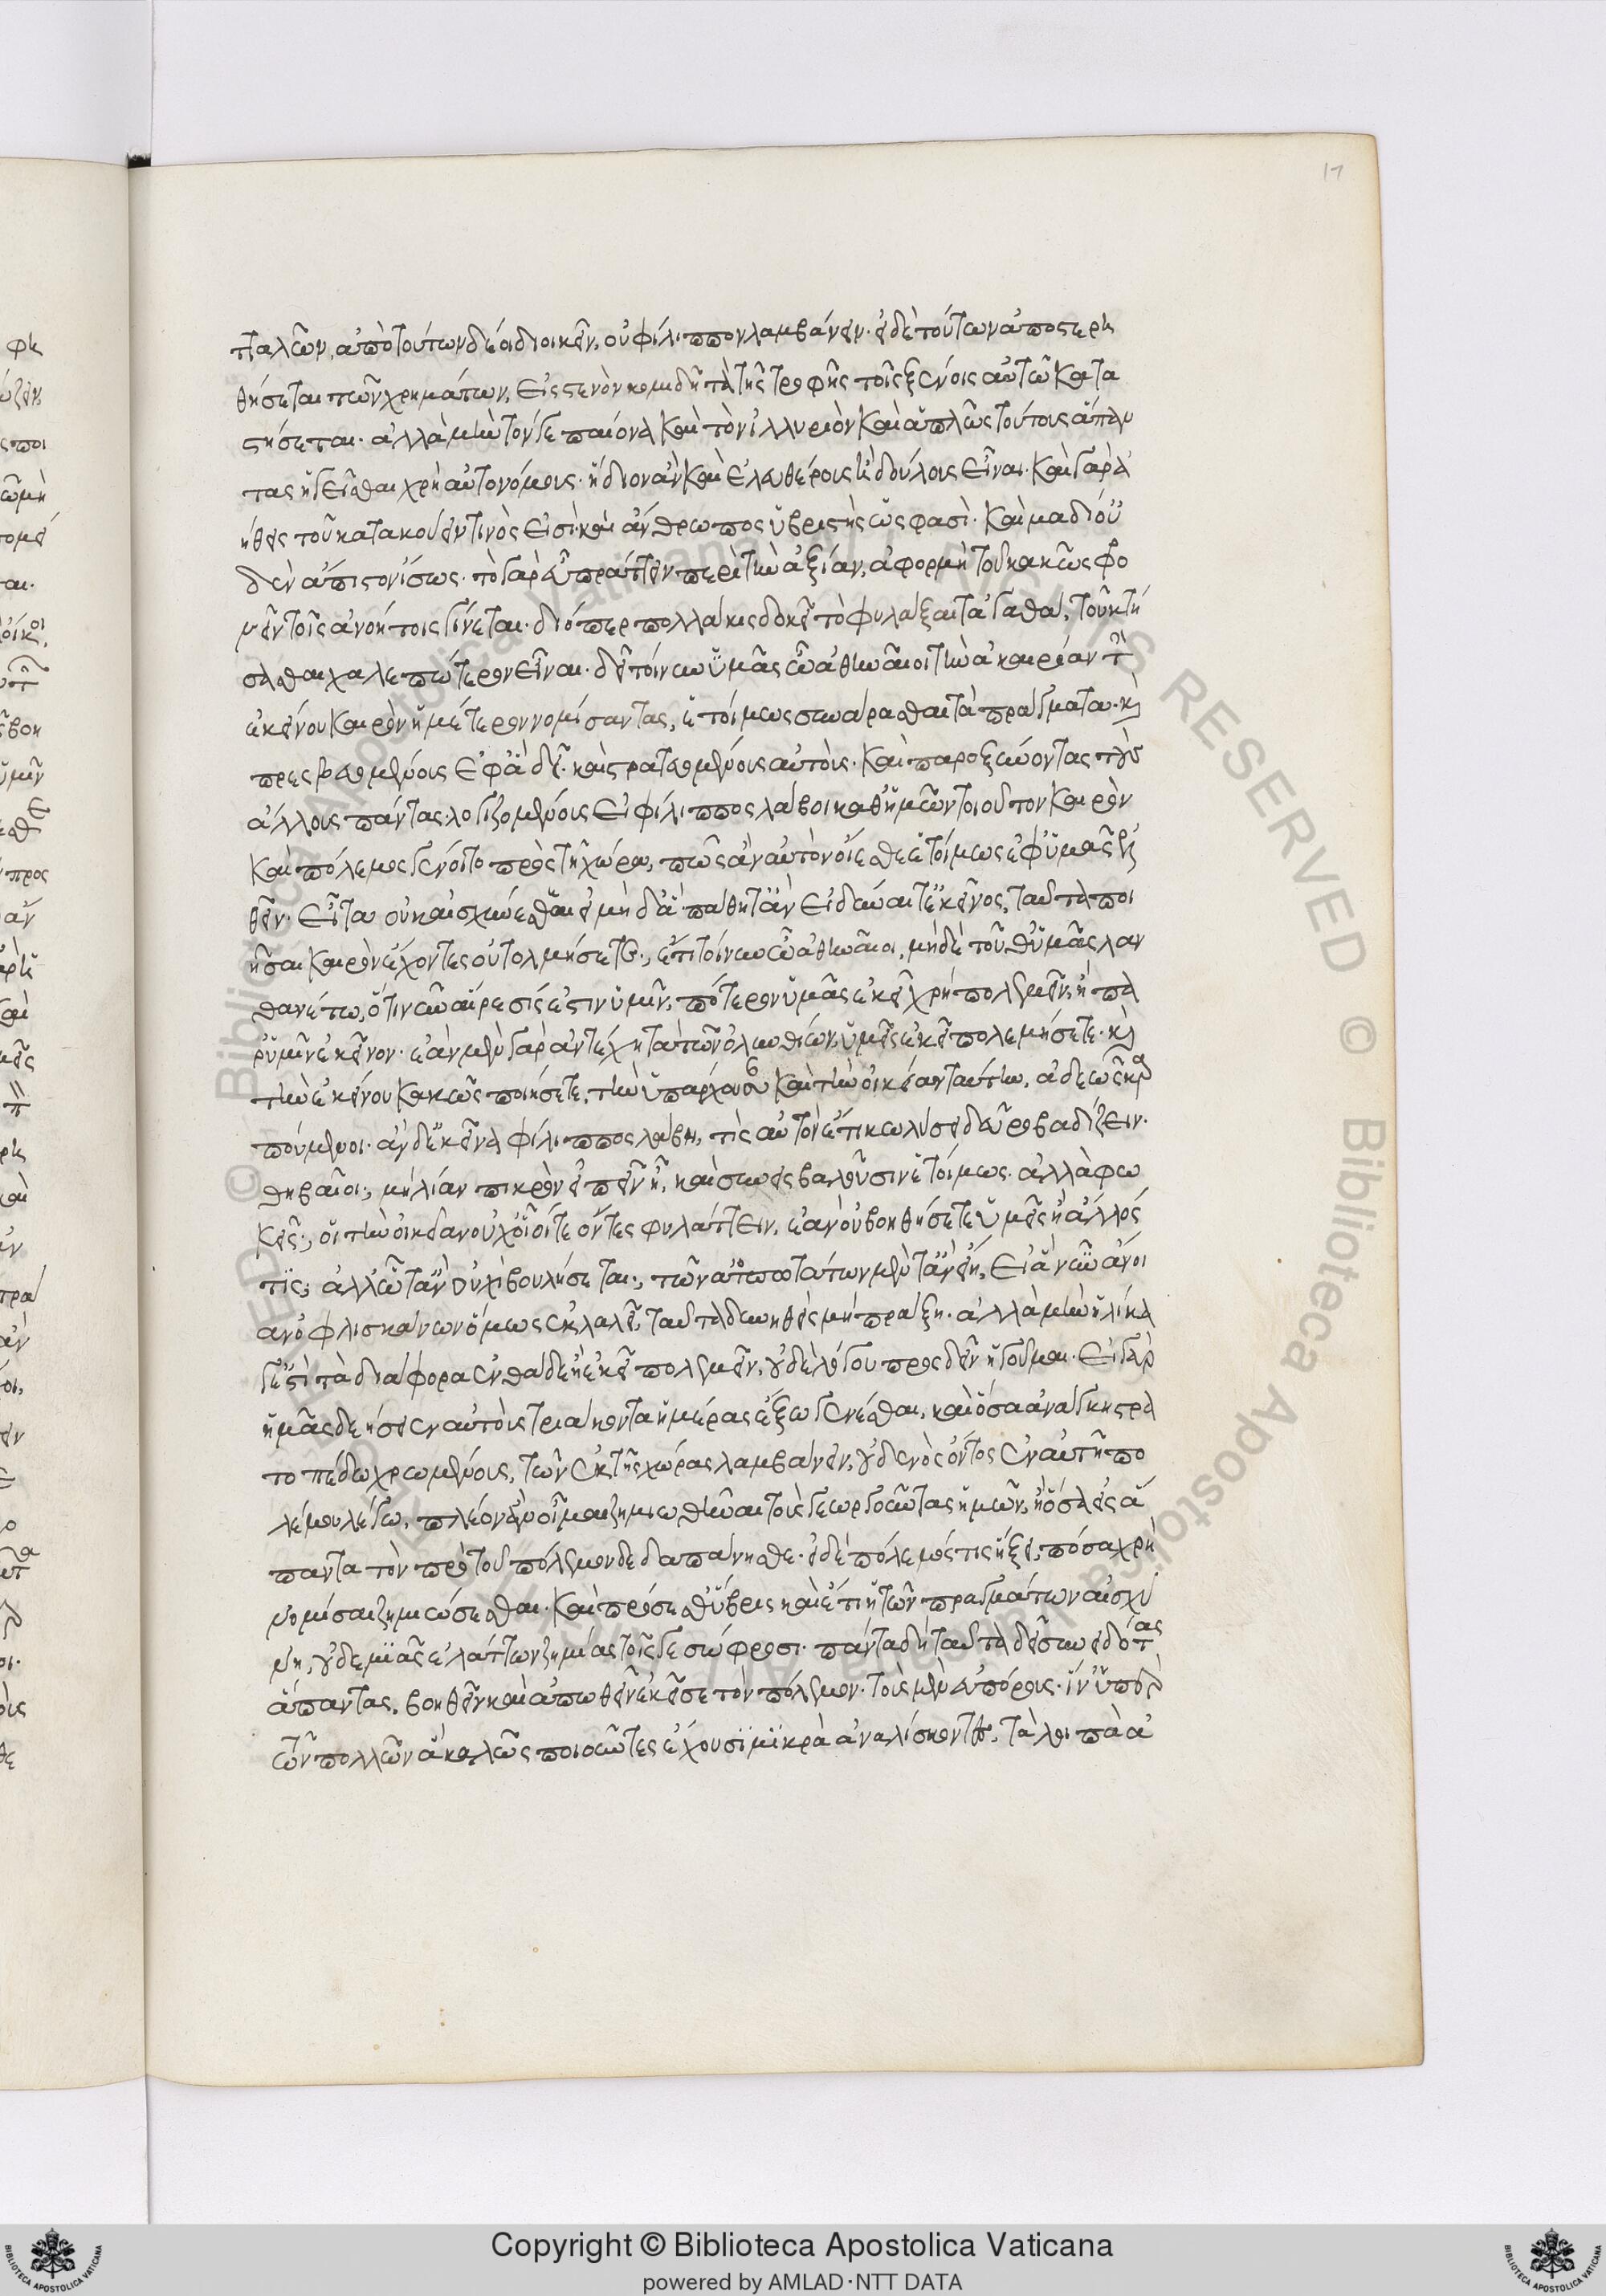 17
τταλῶν, ἀπὸ τούτων δέοι διοικεῖν, οὐ φίλιππον λαμβάνειν· εἰ δὲ τούτων ἀποστερη
θήσεται τῶν χρημάτων, εἰς στενὸν κομιδῆ τὰ τῆς τροφῆς τοῖς ξένοις αὐτῶ κατα
στήσεται· ἀλλὰ μὴν τόν γε παίονα καὶ τὸν ἰλλυριὸν καὶ ἁπλῶς τούτους ἅπαν
τας ἡγεῖσθαι χρὴ αὐτονόμους· ἥδιον ἂν καὶ ἐλευθέρους ἢ δούλους εἶναι· καὶ γὰρ ἀ
ήθεις τοῦ κατακούειν τινὸς εἰσὶ· καὶ ἄνθρωπος ὑβριστὴς ὥς φασι· καὶ μὰ δί' οὐ
δὲν ἄπιστον ἴσως· τὸ γὰρ εὖ πράττειν περὶ τὴν ἀξίαν, ἀφορμὴ τοῦ κακῶς φρο
νεῖν τοῖς ἀνοήτοις γίνεται· διόπερ πολλάκις δοκεῖ τὸ φυλάξαι τἀγαθὰ, τοῦ κτή
σασθαι χαλεπώτερον εἶναι· δεῖ τοίνυν ὑμᾶς ὦ ἀθηναῖοι τὴν ἀκαιρίαν τὴν
ἐκείνου καιρὸν ἡμέτερον νομίσαντας, ἑτοίμως συνάρασθαι τὰ πράγματα· καὶ
πρεσβευομένους ἐφ' ἃ δεῖ· καὶ στρατευομένους αὐτοὺς· καὶ παροξύνοντας τοὺς
ἄλλους πάντας· λογιζομένους εἰ φίλιππος λάβοι καθ' ἡμῶν τοιοῦτον καιρὸν
καὶ πόλεμος γένοιτο πρὸς τῆ χώρα, πῶς ἂν αὐτὸν οἴεσθε ἑτοίμως ἐφ' ὑμᾶς ἐλ
θεῖν· εἶτα οὐκ αἰσχύνεσθε εἰ μηδ' ἃ πάθητ' ἂν εἰ δύναιτ' ἐκεῖνος, ταῦτα ποι
ῆσαι καιρὸν ἔχοντες οὐ τολμήσετε·, ἔτι τοίνυν ὦ ἀθηναῖοι, μηδὲ τοῦθ' ὑμᾶς λαν
θανέτω, ὅτι νῦν αἵρεσίς ἐστιν ὑμῖν, πότερον ὑμᾶς ἐκεῖ χρὴ πολεμεῖν, ἢ πα
ρ' ὑμῖν ἐκεῖνον· ἐὰν μὲν γὰρ ἀντέχη τὰ τῶν ὀλυνθίων, ὑμεῖς ἐκεῖ πολεμήσετε· καὶ
τὴν ἐκείνου κακῶς ποιήσετε, τὴν ὑπάρχουσαν καὶ τὴν οἰκείαν ταύτην, ἀδεῶς καρ
πούμενοι· ἂν δ' ἐκεῖνα φίλιππος λάβη, τίς αὐτὸν ἔτι κωλύσει δεῦρο βαδίζειν·
θηβαῖοι·, μὴ λίαν πικρὸν εἰπεῖν ἦ, καὶ συνεισβαλοῦσιν ἑτοίμως· ἀλλὰ φω
κεῖς·, οἱ τὴν οἰκείαν οὐχ οἷοί τε ὄντες φυλάττειν, ἐὰν οὐ βοηθήσετε ὑμεῖς ἢ ἄλλός
τις; ἀλλ' ὦ τὰν οὐχὶ βουλήσεται·, τῶν ἀτοπωτάτων μὲν τἂν εἴη, εἰ ἃ νῦν ἄνοι
αν ὀφλισκάνων ὅμως ἐκλαλεῖ, ταῦτα δυνηθεὶς μὴ πράξη· ἀλλὰ μὴν ἡλίκα
γ' ἐστὶ τὰ διάφορα ἐνθάδε ἢ ἐκεῖ πολεμεῖν, οὐδὲ λόγου προσδεῖν ἡγοῦμαι· εἰ γὰρ
ἡμᾶς δεήσειεν αὐτοὺς τριάκοντα ἡμέρας ἔξω γενέσθαι, καὶ ὅσα ἀνάγκη στρα
τοπέδω χρωμένους, τῶν ἐκ τῆς χώρας λαμβάνειν, οὐδενὸς ὄντος ἐν αὐτῆ πο
λεμίου λέγω, πλέον ἂν οἶμαι ζημιωθῆναι τοὺς γεωργοῦντας ἡμῶν, ἢ ὅσα εἰς ἅ
παντα τὸν πρὸ τοῦ πόλεμον δεδαπάνησθε· εἰ δὲ πόλεμός τις ἥξει, πόσα χρὴ
νομίσαι ζημιώσεσθαι· καὶ πρόσεσθ' ὕβρις καὶ ἔτι ἡ τῶν πραγμάτων αἰσχύ
νη, οὐδεμιᾶς ἐλάττων ζημίας τοῖς γε σώφροσι· πάντα δὴ ταῦτα δεῖ συνειδότας
ἅπαντας, βοηθεῖν καὶ ἀπωθεῖν ἐκεῖσε τὸν πόλεμον· τοὺς μὲν εὐπόρους· ἵν' ὑπὲρ
τῶν πολλῶν ἃ καλῶς ποιοῦντες ἔχουσι μικρὰ ἀναλίσκοντες, τὰ λοιπὰ ἀ
Copyright © Biblioteca Apostolica Vaticana
powered by AMLAD·NTT DATA